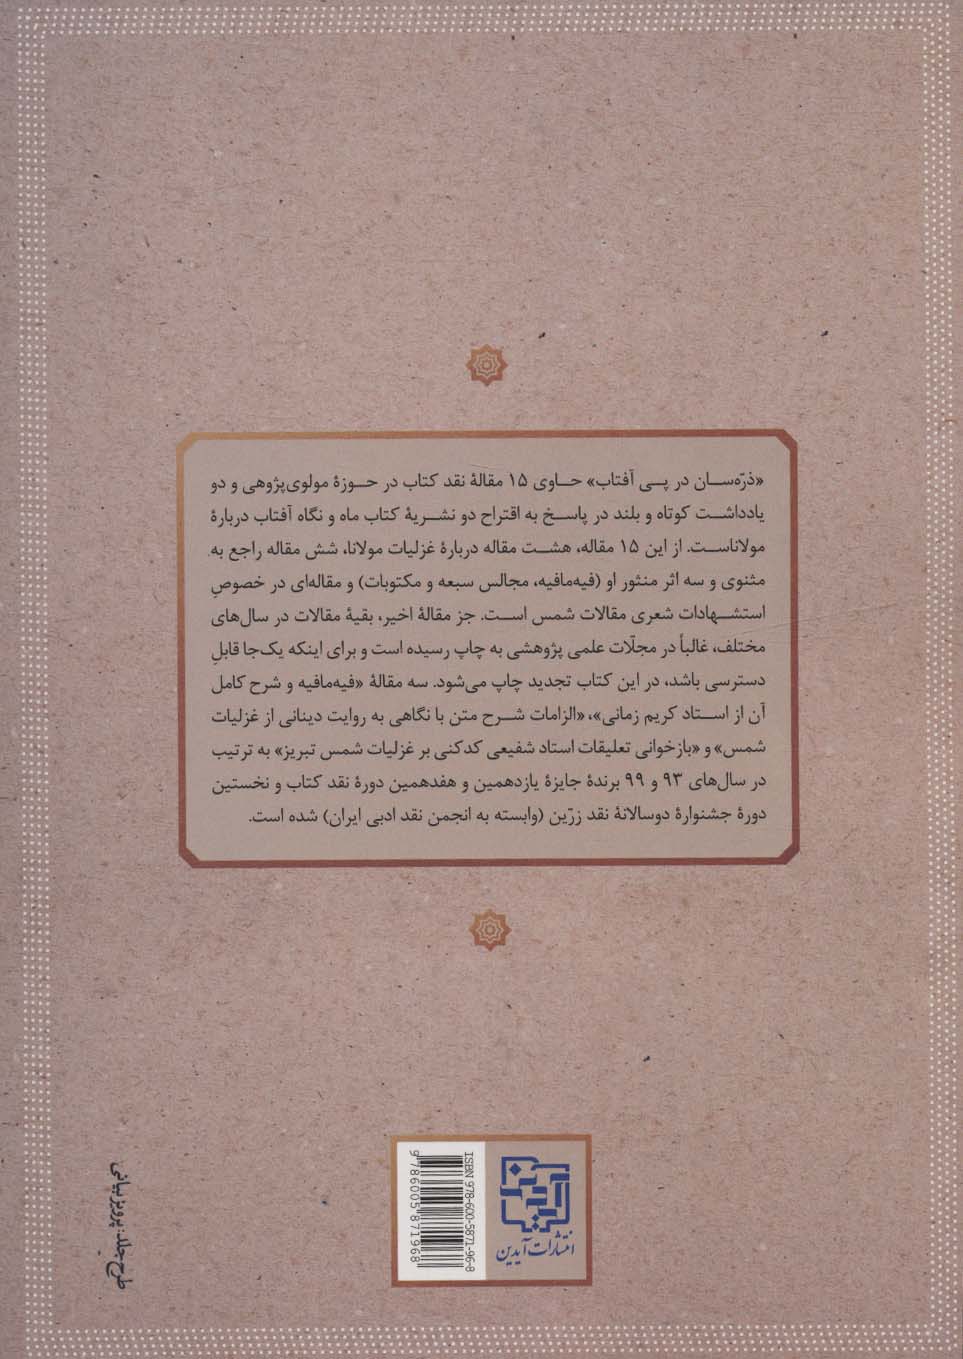 «ذرّه‌سان در پی آفتاب» حاوی ۱۵ مقالهٔ نقد کتاب در حوزهٔ مولوی‌پژوهی و دو
یادداشت کوتاه و بلند در پاسخ به اقتراح دو نشریهٔ کتاب ماه و نگاه آفتاب دربارهٔ
مولاناست. از این ۱۵ مقاله، هشت مقاله دربارهٔ غزلیات مولانا، شش مقاله راجع به
مثنوی و سه اثر منثور او (فیه‌مافیه، مجالس سبعه و مکتوبات) و مقاله‌ای در خصوصِ
استشهادات شعری مقالات شمس است. جز مقالهٔ اخیر، بقیهٔ مقالات در سال‌های
مختلف، غالباً در مجلّات علمی پژوهشی به چاپ رسیده است و برای اینکه یک‌جا قابلِ
دسترسی باشد، در این کتاب تجدید چاپ می‌شود. سه مقالهٔ «فیه‌مافیه و شرح کامل
آن از استاد کریم زمانی»، «الزامات شرح متن با نگاهی به روایت دینانی از غزلیات
شمس» و «بازخوانی تعلیقات استاد شفیعی کدکنی بر غزلیات شمس تبریز» به ترتیب
در سال‌های ۹۳ و ۹۹ برندهٔ جایزهٔ یازدهمین و هفدهمین دورهٔ نقد کتاب و نخستین
دورهٔ جشنوارهٔ دوسالانهٔ نقد زرّین (وابسته به انجمن نقد ادبی ایران) شده است.
آیدین
انتشارات آیدین
ISBN 978-600-5871-96-8
9786005871968
طرح جلد: پرویز بیانی